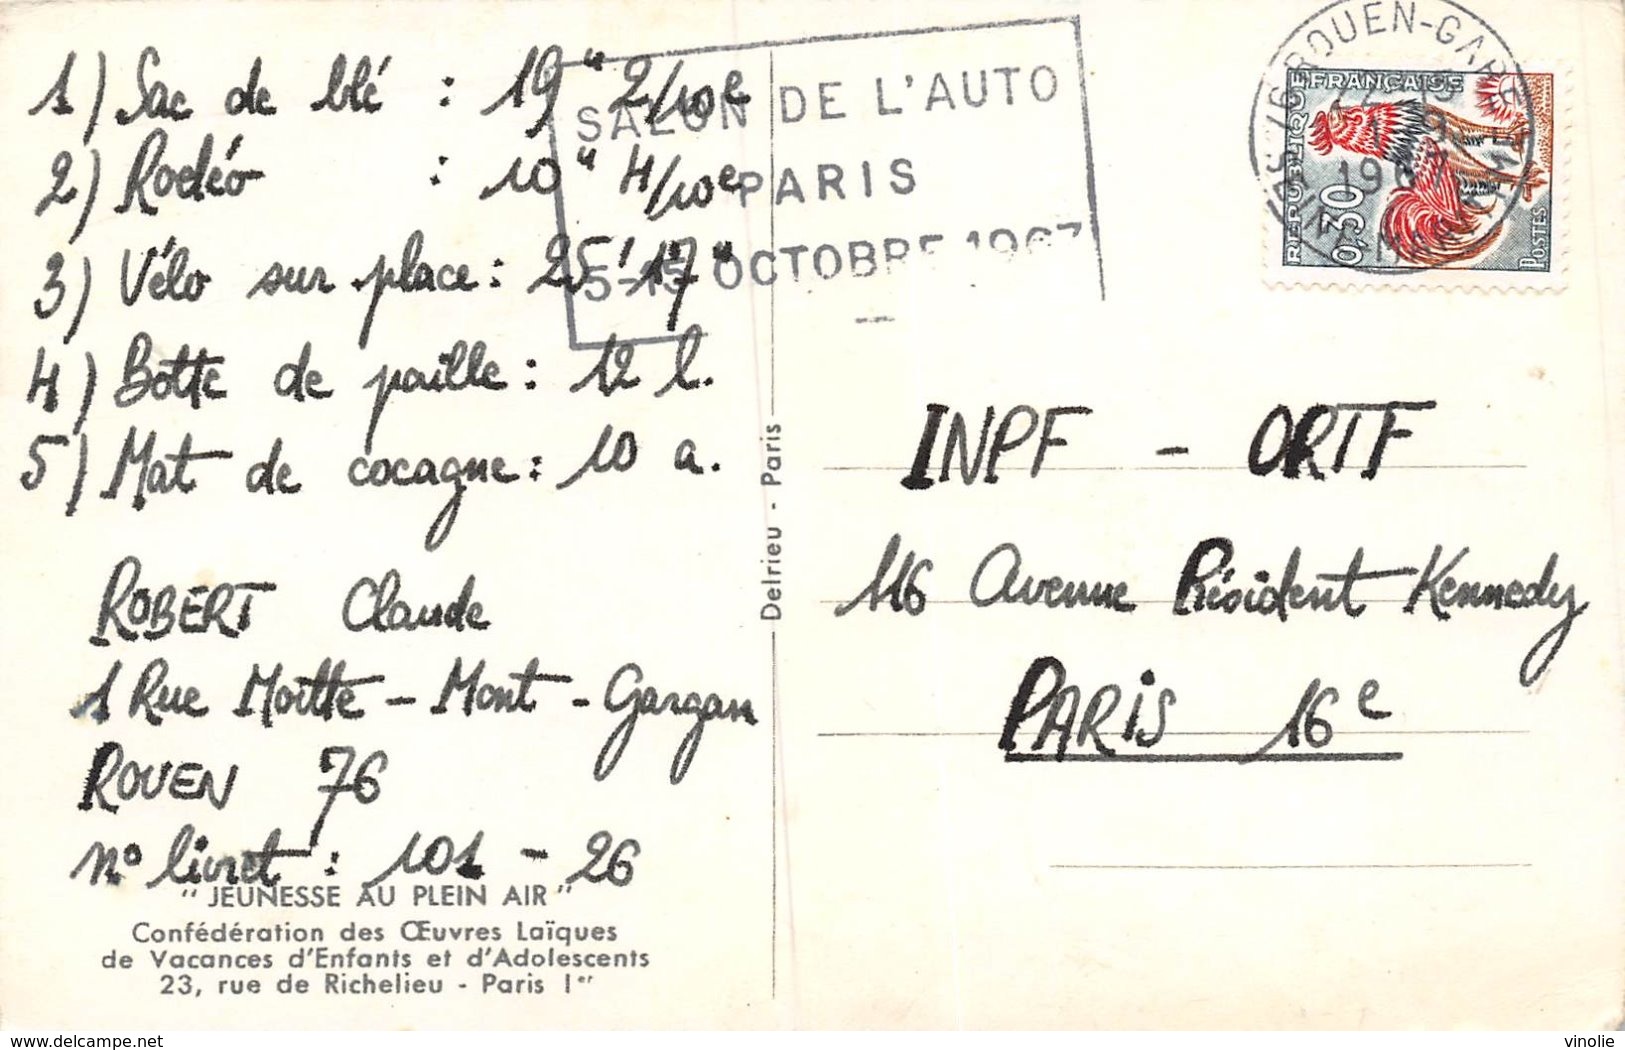 1) Sac de blé : 19" 2/10e
2) Rodéo : 10" 4/10e
3) Vélo sur place : 25' 17"
4) Botte de paille : 12 l.
5) Mat de cocagne : 10 a.
ROBERT Claude
1 Rue Moitte - Mont - Gargan
ROUEN 76
n° livret : 101 - 26
" JEUNESSE AU PLEIN AIR "
Confédération des Œuvres Laïques
de Vacances d'Enfants et d'Adolescents
23, rue de Richelieu - Paris Ier
Delrieu - Paris
SALON DE L'AUTO
PARIS
5-15 OCTOBRE 1967
76 ROUEN-GARE
1967
SEINE MARITIME
REPUBLIQUE FRANÇAISE
0,30
POSTES
INPF - ORTF
116 Avenue Président Kennedy
PARIS 16e
delcampe.net
vinolie